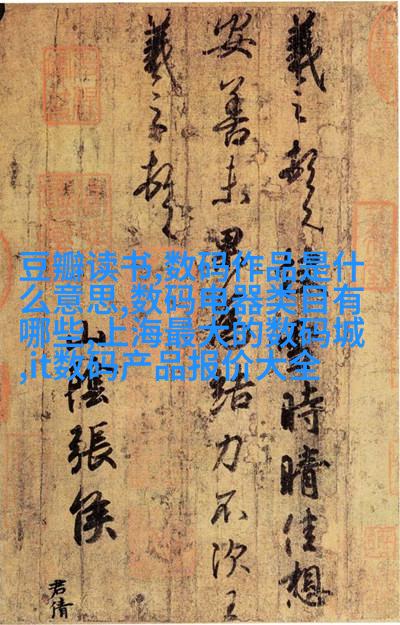 羲之頓首快雪時晴佳想
安善未果為結力不次王
羲之頓首
山陰張侯
君倩
豆瓣读书,数码作品是什
么意思,数码电器类目有
哪些,上海最大的数码城
,it数码产品报价大全